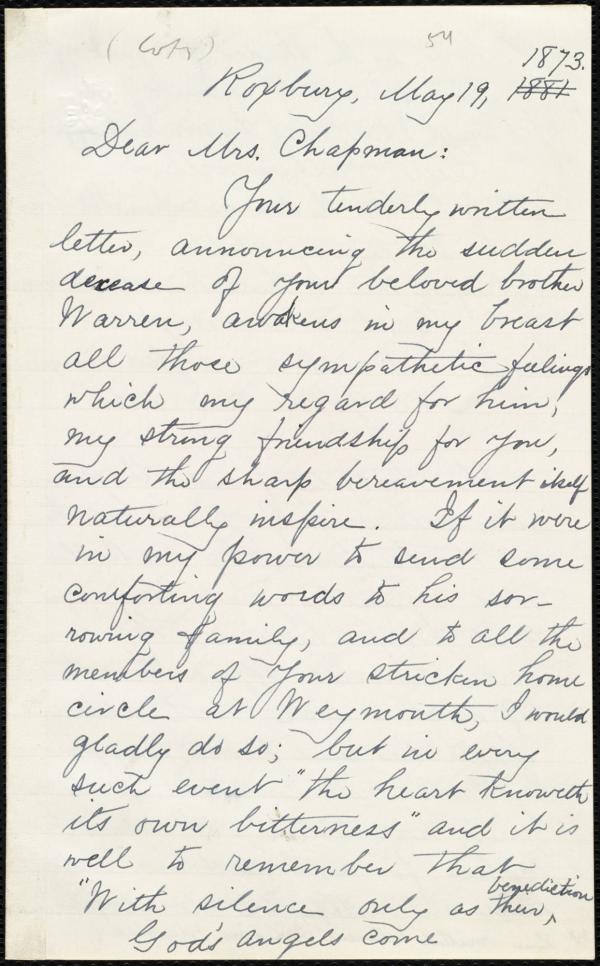 (Copy)
54
1873.
Roxbury, May 19, 1881
Dear Mrs. Chapman:
Your tenderly written
letter, announcing the sudden
decease of your beloved brother
Warren, awakens in my breast
all those sympathetic feelings
which my regard for him,
my strong friendship for you,
and the sharp bereavement itself
naturally inspire. If it were
in my power to send some
comforting words to his sor-
rowing family, and to all the
members of your stricken home
circle at Weymouth, I would
gladly do so; but in every
such event "the heart knoweth
its own bitterness" and it is
well to remember that
benediction
"With silence only as their ‸
God's angels come